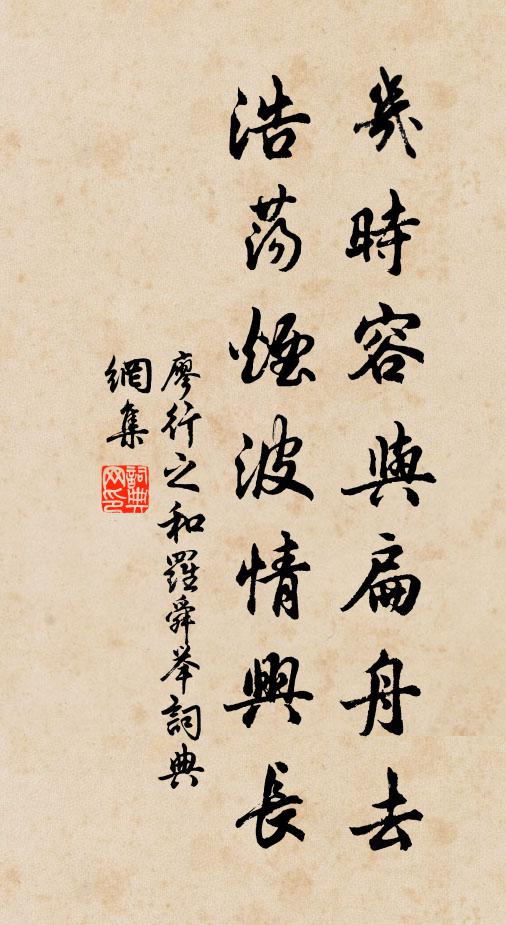 幾時容與扁舟去
浩蕩煙波情興長
廖行之和羅舜举詞典
網集
詞典网印